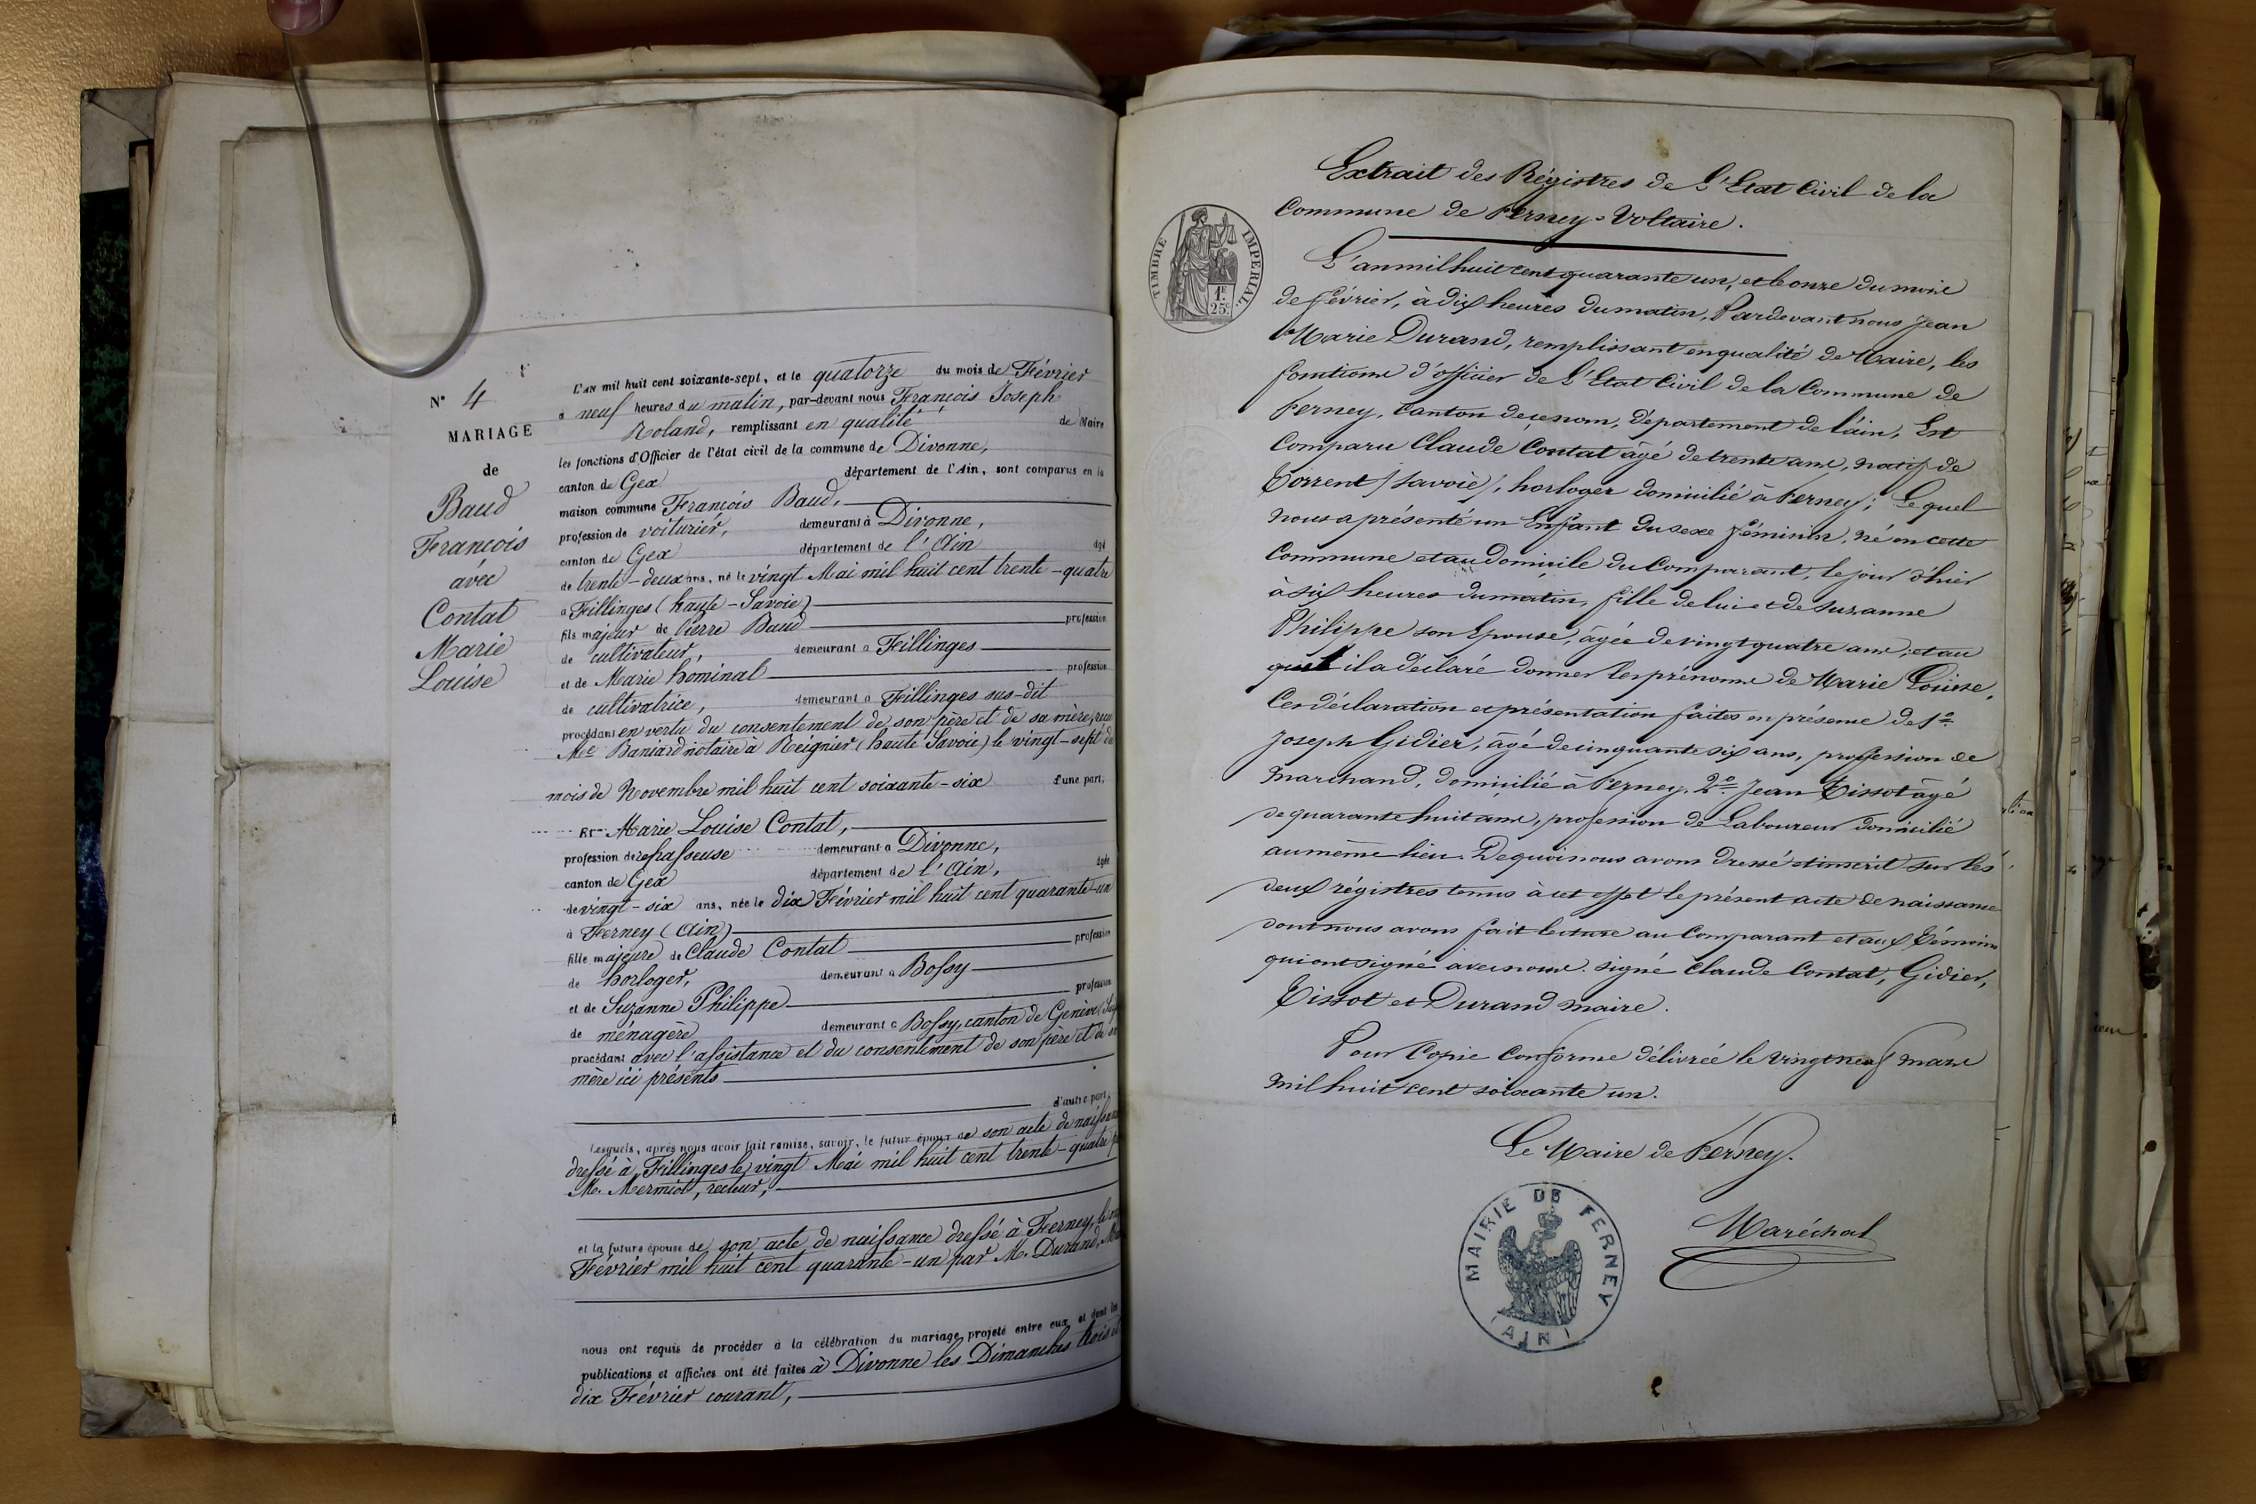 N° 4
MARIAGE
de
Baud
François
avec
Contat
Marie
Louise
L'AN mil huit cent soixante-sept, et le quatorze du mois de Février
a neuf heures du matin, par-devant nous François Joseph
Roland, remplissant en qualité de Maire
les fonctions d'Officier de l'état civil de la commune de Divonne,
canton de Gex département de l'Ain, sont comparus en la
maison commune François Baud,
profession de voiturier, demeurant à Divonne,
canton de Gex département de l'Ain âgé
de trente-deux ans, né le vingt Mai mil huit cent trente-quatre
à Fillinges (haute-Savoie)
fils majeur de Pierre Baud profession
de cultivateur, demeurant à Fillinges
et de Marie hominal profession
de cultivatrice, demeurant à Fillinges sus-dit
procédant en vertu du consentement de son père et de sa mère, reçu
Me Baniard notaire à Reignier (haute Savoie) le vingt-sept du
mois de Novembre mil huit cent soixante-six d'une part,
ET Marie Louise Contat,
profession de repasseuse demeurant à Divonne,
canton de Gex département de l'Ain, âgée
de vingt-six ans, née le dix Février mil huit cent quarante-un
à Ferney (Ain)
fille majeure de Claude Contat profession
de horloger, demeurant à Bossy
et de Suzanne Philippe profession
de ménagère demeurant à Bossy, canton de Genève
procédant avec l'assistance et du consentement de son père et de sa
mère ici présents
d'autre part,
Lesquels, après nous avoir fait remise, savoir, le futur époux de son acte de naissance
dressé à Fillinges le vingt Mai mil huit cent trente-quatre
Mr. Mermiot, recteur,
et la future épouse de son acte de naissance dressé à Ferney, le
Février mil huit cent quarante-un par Mr. Durand,
nous ont requis de procéder à la célébration du mariage projeté entre eux et dont les
publications et affiches ont été faites à Divonne les Dimanches trois et
dix Février courant,
Extrait des Régistres de L'Etat Civil de la
Commune de Ferney-Voltaire.
TIMBRE IMPERIAL
1F
25c
L'an mil huit cent quarante un, et le onze du mois
de février, à dix heures du matin, Pardevant nous Jean
Marie Durand, remplissant en qualité de Maire, les
fonctions d'officier de L'Etat Civil de la Commune de
Ferney, Canton de ce nom, Département de l'ain, Est
Comparu Claude Contat âgé de trente ans, natif de
Correnx (Savoie), horloger domicilié à Ferney; Lequel
nous a présenté un Enfant du sexe féminin, né en cette
Commune et au domicile du Comparant, le jour d'hier
à six heures du matin, fille de lui et de Suzanne
Philippe son Epouse, âgée de vingt quatre ans; et au
quel il a déclaré donner les prénoms de Marie Louise,
Ces déclaration et présentation faites en présence de 1o.
Joseph Gidier, âgé de cinquante six ans, profession de
Marchand, domicilié à Ferney, 2o. Jean Tissot âgé
de quarante huit ans, profession de Laboureur domicilié
au même lieu. De quoi nous avons dressé et inscrit sur les
deux régistres tenus à cet effet le présent acte de naissance
dont nous avons fait lecture au Comparant et aux témoins
qui ont signé avec nous. signé Claude Contat, Gidier,
Tissot et Durand maire.
Pour Copie Conforme délivrée le vingt neuf mars
mil huit cent soixante un.
Le Maire de Ferney.
Maréchal
MAIRIE DE FERNEY
(AIN)